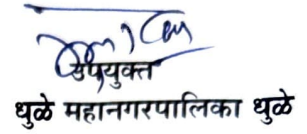 उपयुक्त
धुळे महानगरपालिका धुळे